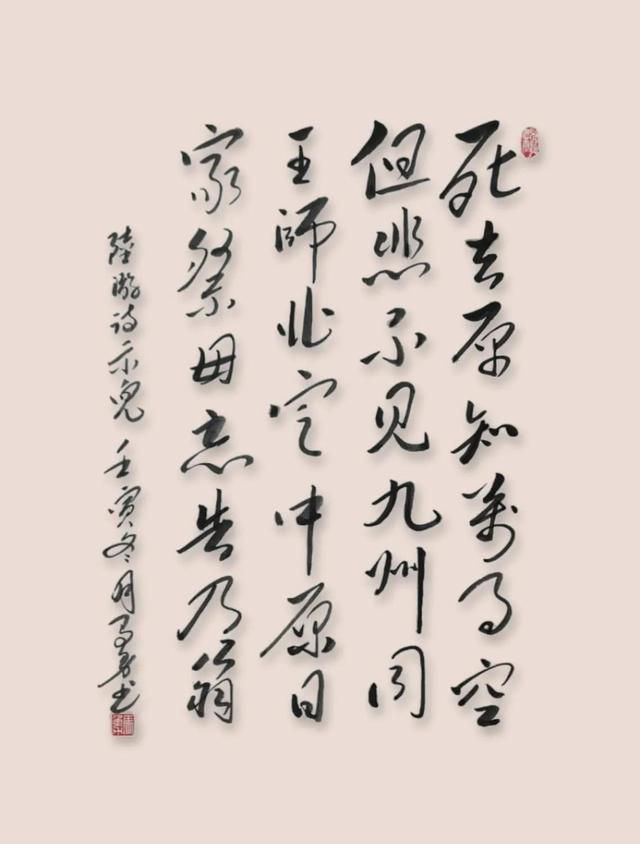 死去原知万事空
但悲不见九州同
王师北定中原日
家祭毋忘告乃翁
陸游诗示兒 壬寅冬月